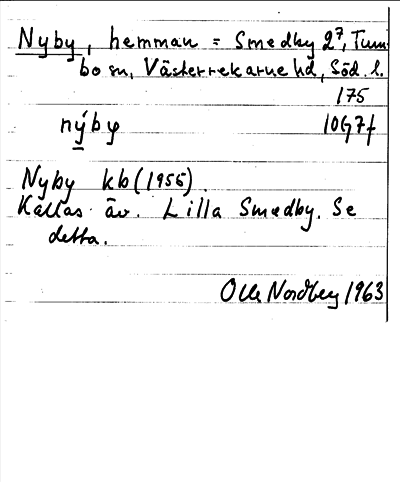 Nyby, hemman = Smedby 2⁷, Tum-
bo sn, Västerrekarne hd, Söd. l.
175
nýby 10G7f
Nyby kb (1956).
Kallas äv. Lilla Smedby. Se
detta.
Olle Nordberg 1963